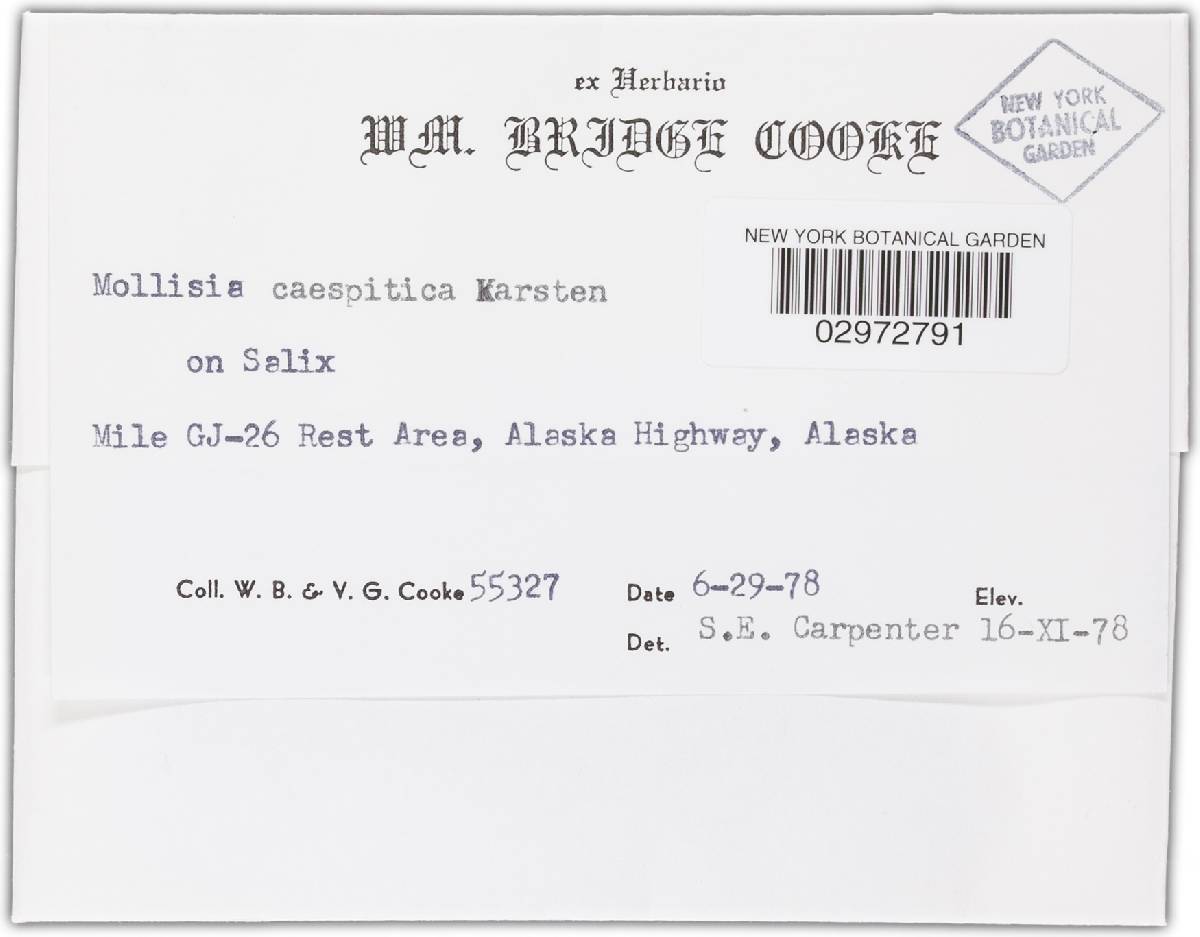 ex Herbario
WM. BRIDGE COOKE
NEW YORK
BOTANICAL
GARDEN
NEW YORK BOTANICAL GARDEN
02972791
Mollisia caespitica Karsten
on Salix
Mile GJ-26 Rest Area, Alaska Highway, Alaska
Coll. W. B. & V. G. Cooke 55327 Date 6-29-78 Elev.
Det. S.E. Carpenter 16-XI-78